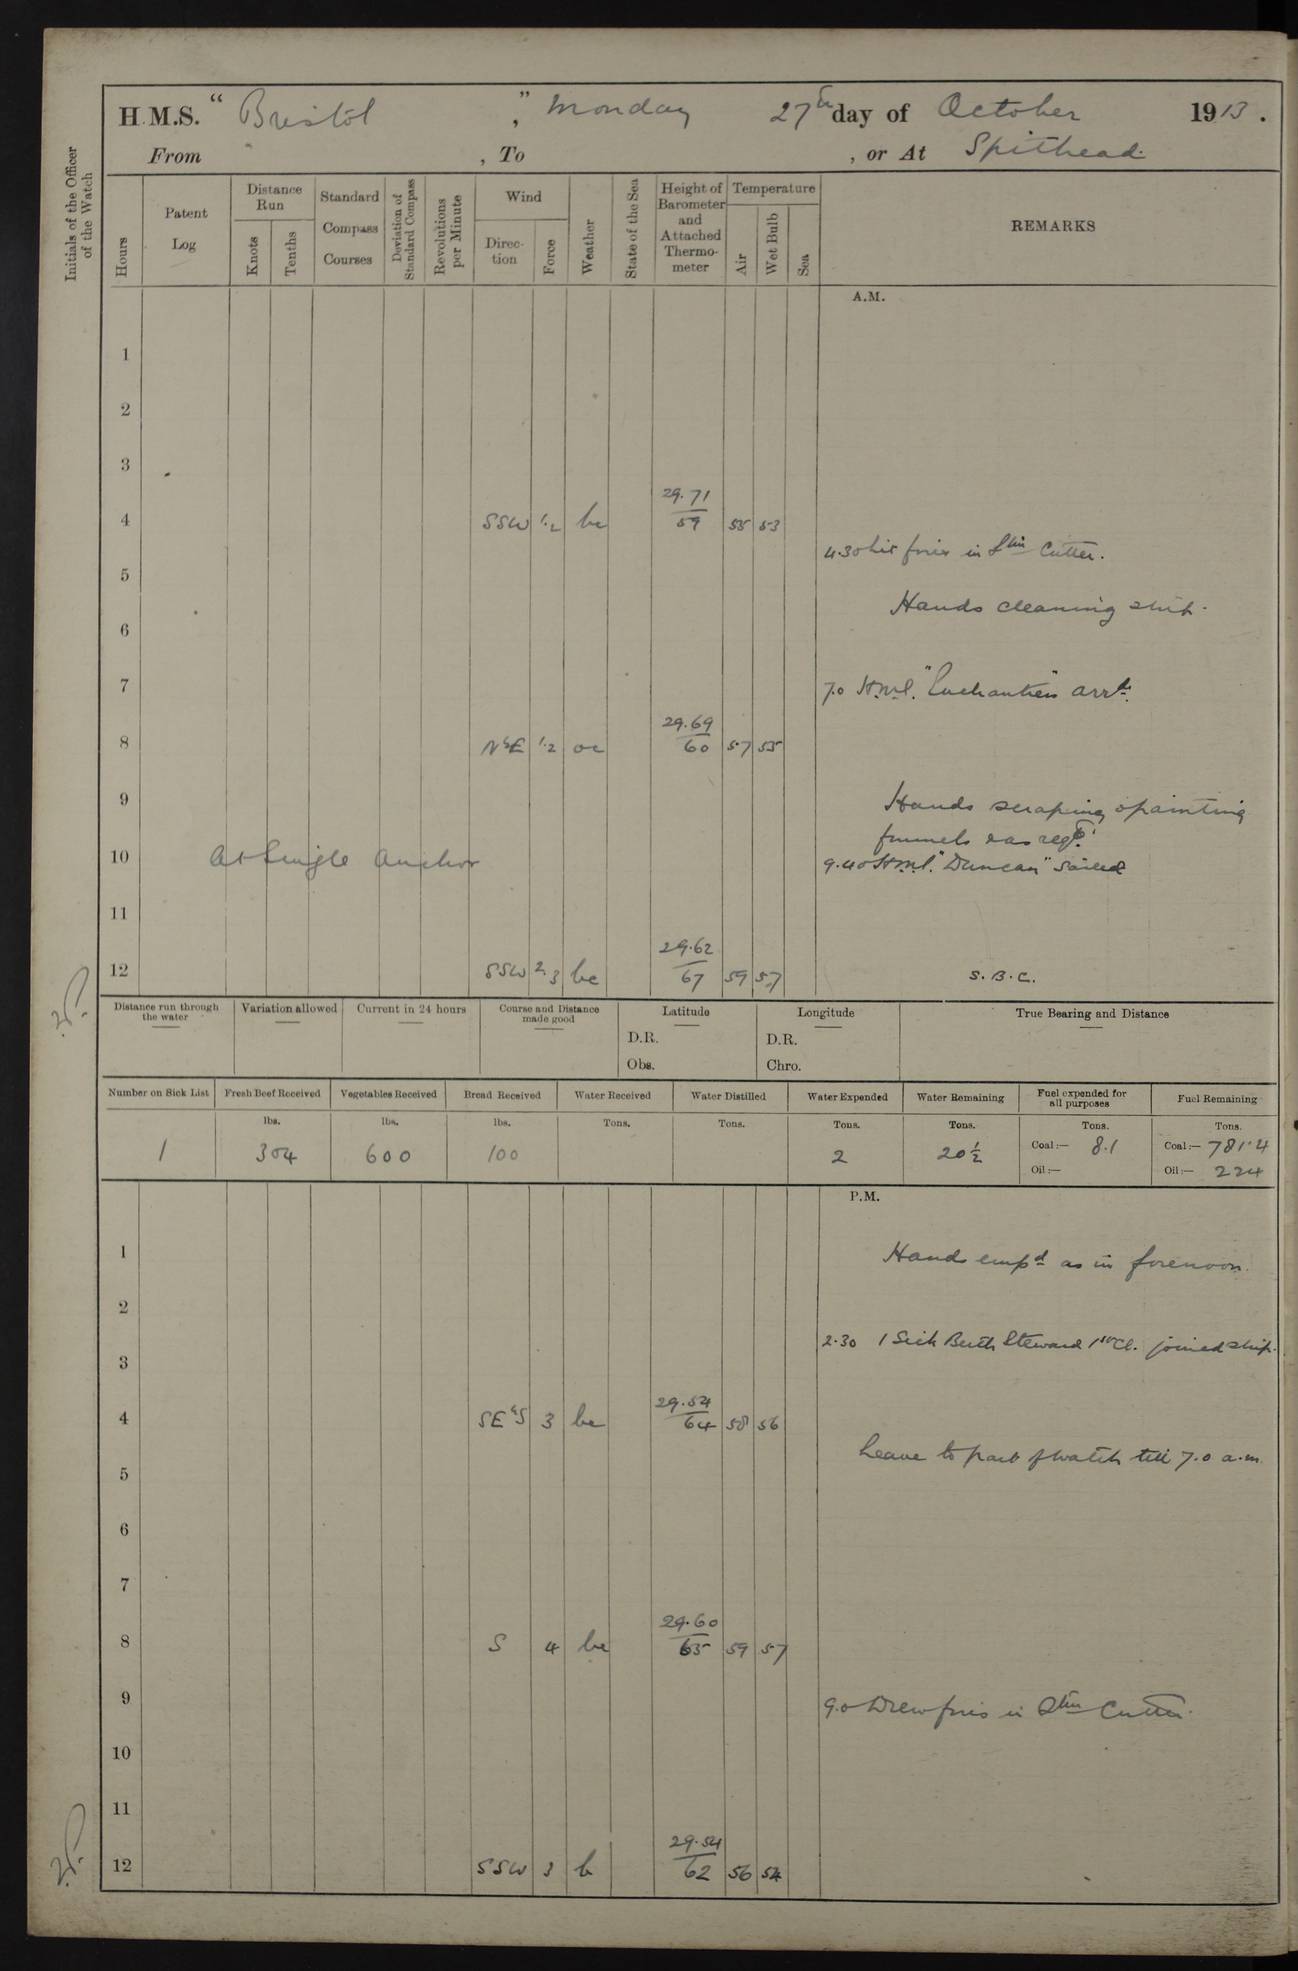 H.M.S. “ Bristol ”, Monday 27th day of October 1913.
From , To , or At Spithead.
Initials of the Officer of the Watch
Hours
Patent Log
Distance Run
Knots
Tenths
Standard Compass Courses
Deviation of Standard Compass
Revolutions per Minute
Wind
Direc-tion
Force
Weather
State of the Sea
Height of Barometer and Attached Thermo-meter
Temperature
Air
Wet Bulb
Sea
REMARKS
A.M.
1
2
3
4 SSW 1.2 bc 29.71 59 55 53
4.30 Lit fires in Stm Cutter.
5
Hands cleaning ship.
6
7 7.0 H.M.S. "Enchantress" arrd.
8 N'E 1.2 oc 29.69 60 57 55
9 Hands scraping & painting
funnels & as reqd.
10 At Single Anchor 9.40 H.M.S. "Duncan" Sailed
11
12 SSW 2.3 bc 29.62 67 59 57 S.B.C.
Distance run through the water
Variation allowed
Current in 24 hours
Course and Distance made good
Latitude
D.R.
Obs.
Longitude
D.R.
Chro.
True Bearing and Distance
Number on Sick List
Fresh Beef Received
Vegetables Received
Bread Received
Water Received
Water Distilled
Water Expended
Water Remaining
Fuel expended for all purposes
Fuel Remaining
lbs. lbs. lbs. Tons. Tons. Tons. Tons. Tons. Tons.
1 304 600 100 2 20½ Coal:— 8.1 Coal:— 781.4
Oil:— Oil:— 224
P.M.
1 Hands empd as in forenoon.
2
2.30 1 Sick Berth Steward 1st Cl. joined ship.
3
4 SE'S 3 bc 29.54 64 58 56
Leave to part of watch till 7.0 a.m.
5
6
7
8 S 4 bc 29.60 65 59 57
9 9.0 Drew fires in Stm Cutter.
10
11
12 SSW 3 b 29.54 62 56 54